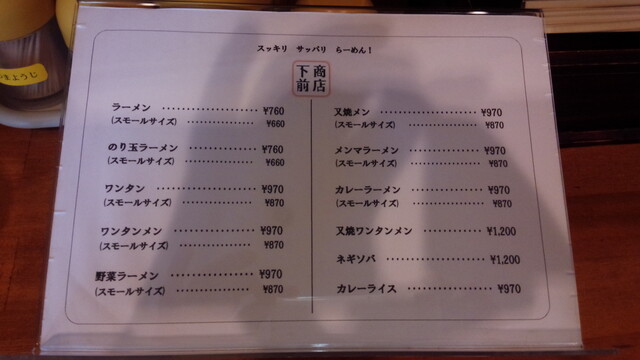 スッキリ サッパリ らーめん!
商店
下前
ラーメン ‥‥‥‥‥‥‥ ¥760
(スモールサイズ) ‥‥‥‥‥‥‥ ¥660
のり玉ラーメン ‥‥‥‥‥‥‥ ¥760
(スモールサイズ) ‥‥‥‥‥‥‥ ¥660
ワンタン ‥‥‥‥‥‥‥ ¥970
(スモールサイズ) ‥‥‥‥‥‥‥ ¥870
ワンタンメン ‥‥‥‥‥‥‥ ¥970
(スモールサイズ) ‥‥‥‥‥‥‥ ¥870
野菜ラーメン ‥‥‥‥‥‥‥ ¥970
(スモールサイズ) ‥‥‥‥‥‥‥ ¥870
叉焼メン ‥‥‥‥‥‥‥ ¥970
(スモールサイズ) ‥‥‥‥‥‥‥ ¥870
メンマラーメン ‥‥‥‥‥‥‥ ¥970
(スモールサイズ) ‥‥‥‥‥‥‥ ¥870
カレーラーメン ‥‥‥‥‥‥‥ ¥970
(スモールサイズ) ‥‥‥‥‥‥‥ ¥870
叉焼ワンタンメン ‥‥‥‥‥‥‥ ¥1,200
ネギソバ ‥‥‥‥‥‥‥ ¥1,200
カレーライス ‥‥‥‥‥‥‥ ¥970